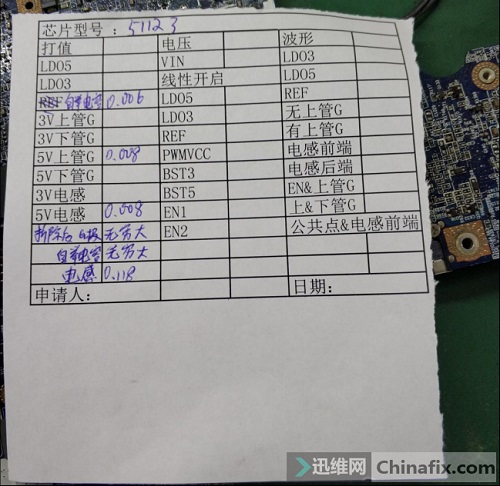 芯片型号：51123
打值 电压 波形
LDO5 VIN LDO3
LDO3 线性开启 LDO5
REF 自举电容 0.006 LDO5 REF
3V上管G LDO3 无上管G
3V下管G REF 有上管G
5V上管G 0.008 PWMVCC 电感前端
5V下管G BST3 电感后端
3V电感 BST5 EN&上管G
5V电感 0.008 EN1 上&下管G
拆除后 G极 无穷大 EN2 公共点&电感前端
自举电容 无穷大
电感 0.118
申请人： 日期：
迅维网 Chinafix.com